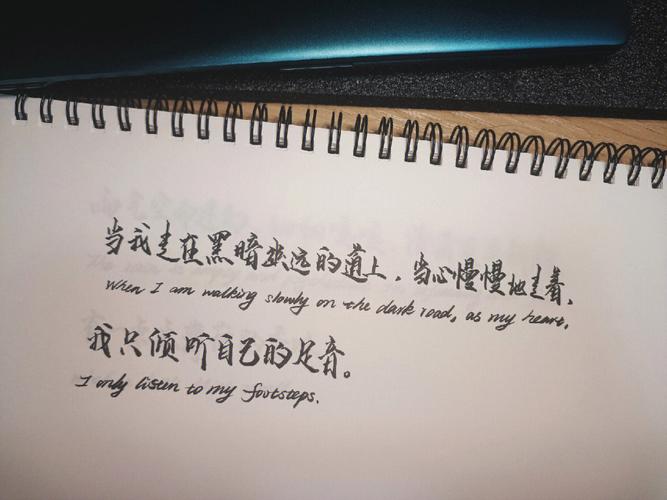 当我走在黑暗幽远的道上，当心慢慢地走着，
When I am walking slowly on the dark road, as my heart,
我只倾听自己的足音。
I only listen to my footsteps.